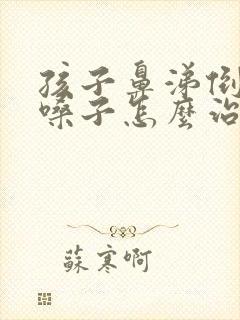 孩子鼻涕倒
嗓子怎麼治
蘇寒啊